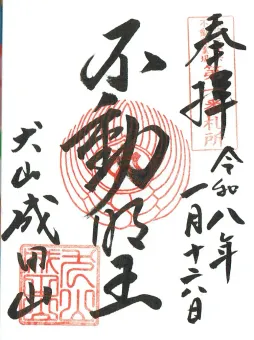 奉拝
令和八年
一月十六日
不動明王
犬山成田山